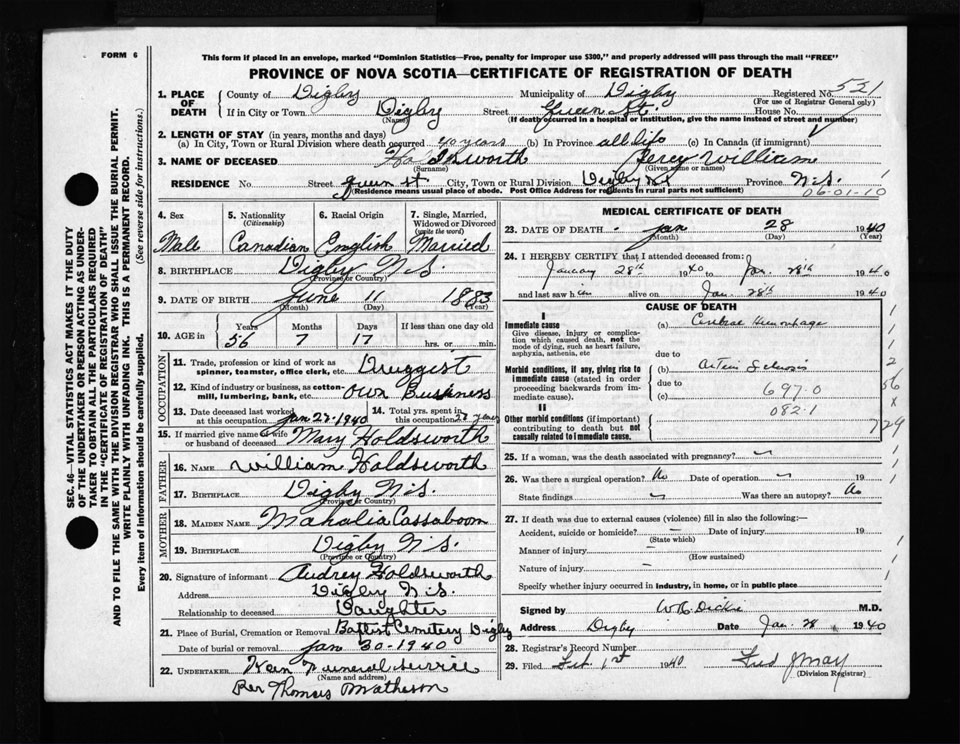 FORM 6
This form if placed in an envelope, marked "Dominion Statistics—Free, penalty for improper use $300," and properly addressed will pass through the mail "FREE"
PROVINCE OF NOVA SCOTIA—CERTIFICATE OF REGISTRATION OF DEATH
SEC. 46—VITAL STATISTICS ACT MAKES IT THE DUTY
OF THE UNDERTAKER OR PERSON ACTING AS UNDER-
TAKER TO OBTAIN ALL THE PARTICULARS REQUIRED
IN THE "CERTIFICATE OF REGISTRATION OF DEATH"
AND TO FILE THE SAME WITH THE DIVISION REGISTRAR WHO SHALL ISSUE THE BURIAL PERMIT.
WRITE PLAINLY WITH UNFADING INK. THIS IS A PERMANENT RECORD.
Every item of information should be carefully supplied. (See reverse side for instructions.)
1. PLACE OF DEATH County of Digby Municipality of Digby Registered No. 521
(For use of Registrar General only)
If in City or Town Digby Street Queen St. House No.
(Name) (If death occurred in a hospital or institution, give the name instead of street and number)
2. LENGTH OF STAY (in years, months and days)
(a) In City, Town or Rural Division where death occurred 40 years (b) In Province all life (c) In Canada (if immigrant)
3. NAME OF DECEASED Holdsworth Percy William
(Surname) (Given name or names)
RESIDENCE No. Street Queen St City, Town or Rural Division Digby Province N.S.
(Residence means usual place of abode. Post Office Address for residents in rural parts not sufficient) 06-01-10
4. Sex 5. Nationality (Citizenship) 6. Racial Origin 7. Single, Married, Widowed or Divorced (write the word)
Male Canadian English Married
8. BIRTHPLACE Digby N.S.
(Province or Country)
9. DATE OF BIRTH June 11 1883
(Month) (Day) (Year)
10. AGE in Years Months Days If less than one day old
56 7 17 hrs. or min.
OCCUPATION
11. Trade, profession or kind of work as spinner, teamster, office clerk, etc. Druggist
12. Kind of industry or business, as cotton-mill, lumbering, bank, etc. Own Business
13. Date deceased last worked at this occupation Jan 27-1940 14. Total yrs. spent in this occupation
15. If married give name of wife or husband of deceased Mary Holdsworth
FATHER
16. NAME William Holdsworth
17. BIRTHPLACE Digby N.S.
(Province or Country)
MOTHER
18. MAIDEN NAME Mahalia Cassaboom
19. BIRTHPLACE Digby N.S.
(Province or Country)
20. Signature of informant Audrey Holdsworth
Address Digby N.S.
Relationship to deceased Daughter
21. Place of Burial, Cremation or Removal Baptist Cemetery Digby
Date of burial or removal Jan 30-1940
22. UNDERTAKER Funeral Service
(Name and address)
Per Thomas Matheson
MEDICAL CERTIFICATE OF DEATH
23. DATE OF DEATH Jan 28 1940
(Month) (Day) (Year)
24. I HEREBY CERTIFY that I attended deceased from:
January 28th 1940 to Jan. 28th 1940
and last saw him alive on Jan. 28th 1940
CAUSE OF DEATH
I
Immediate cause (a) Cerebral Hemorrhage
Give disease, injury or complication which caused death, not the mode of dying, such as heart failure, asphyxia, asthenia, etc
due to
Morbid conditions, if any, giving rise to immediate cause (stated in order proceeding backwards from immediate cause). (b) Arterio Sclerosis
due to 697.0
(c)
082.1
II
Other morbid conditions (if important) contributing to death but not causally related to immediate cause.
1
1
1
2
56
x
729
25. If a woman, was the death associated with pregnancy?
26. Was there a surgical operation? No Date of operation 19
State findings Was there an autopsy? No
27. If death was due to external causes (violence) fill in also the following:—
Accident, suicide or homicide? Date of injury 19
(State which)
Manner of injury
(How sustained)
Nature of injury
Specify whether injury occurred in industry, in home, or in public place
Signed by W.R. Dickie M.D.
Address Digby Date Jan. 28 1940
28. Registrar's Record Number
29. Filed Feb. 1st 1940 Fred J May
(Division Registrar)